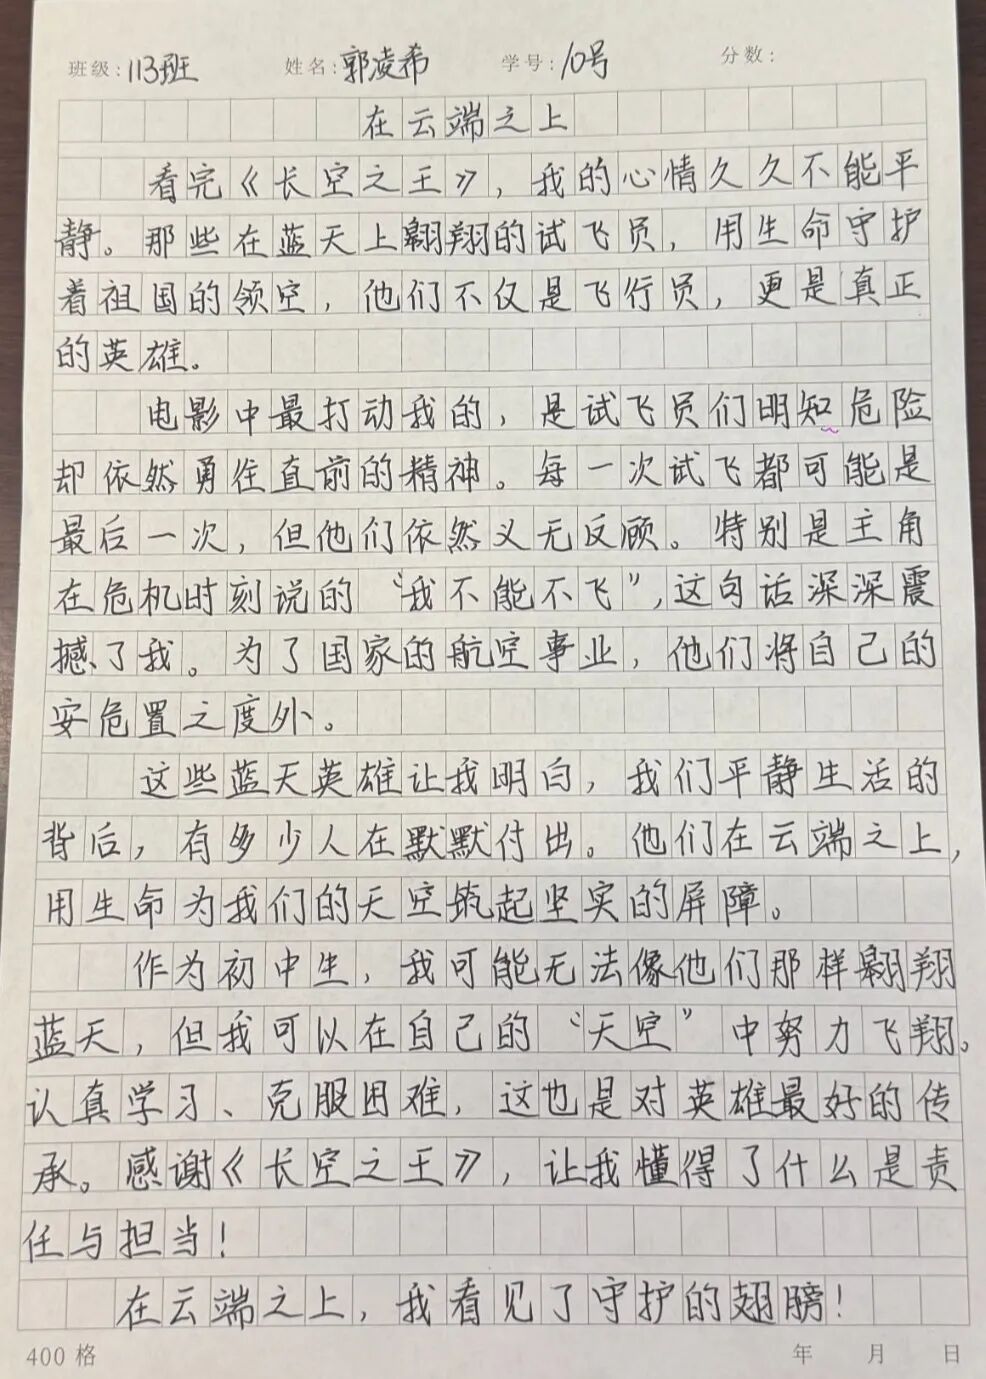 班级：113班 姓名：郭凌希 学号：10号 分数：
在云端之上
看完《长空之王》，我的心情久久不能平
静。那些在蓝天上翱翔的试飞员，用生命守护
着祖国的领空，他们不仅是飞行员，更是真正
的英雄。
电影中最打动我的，是试飞员们明知危险
却依然勇往直前的精神。每一次试飞都可能是
最后一次，但他们依然义无反顾。特别是主角
在危机时刻说的“我不能不飞”，这句话深深震
撼了我。为了国家的航空事业，他们将自己的
安危置之度外。
这些蓝天英雄让我明白，我们平静生活的
背后，有多少人在默默付出。他们在云端之上，
用生命为我们的天空筑起坚实的屏障。
作为初中生，我可能无法像他们那样翱翔
蓝天，但我可以在自己的“天空”中努力飞翔。
认真学习、克服困难，这也是对英雄最好的传
承。感谢《长空之王》，让我懂得了什么是责
任与担当！
在云端之上，我看见了守护的翅膀！
400格 年 月 日